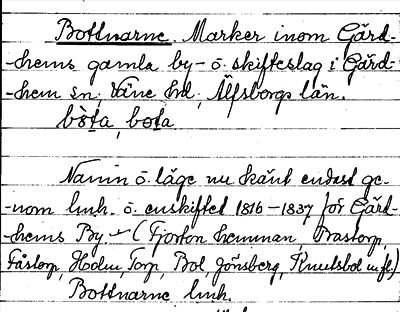 Bottnarne. Marker inom Gärd-
-hems gamla by- o. skifteslag i Gärd-
-hem sn, Väne hd, Älfsborgs län.
bòta, bota
Namn o. läge nu känt endast ge-
-nom lmh. o. enskiftet 1816-1837 för Gärd-
-hems By. - (Fjorton hemman, Brastorp,
Fåstorp, Holm, Torp, Bol, Jönsberg, Knutsbol m.fl.)
Bottnarne lmh.